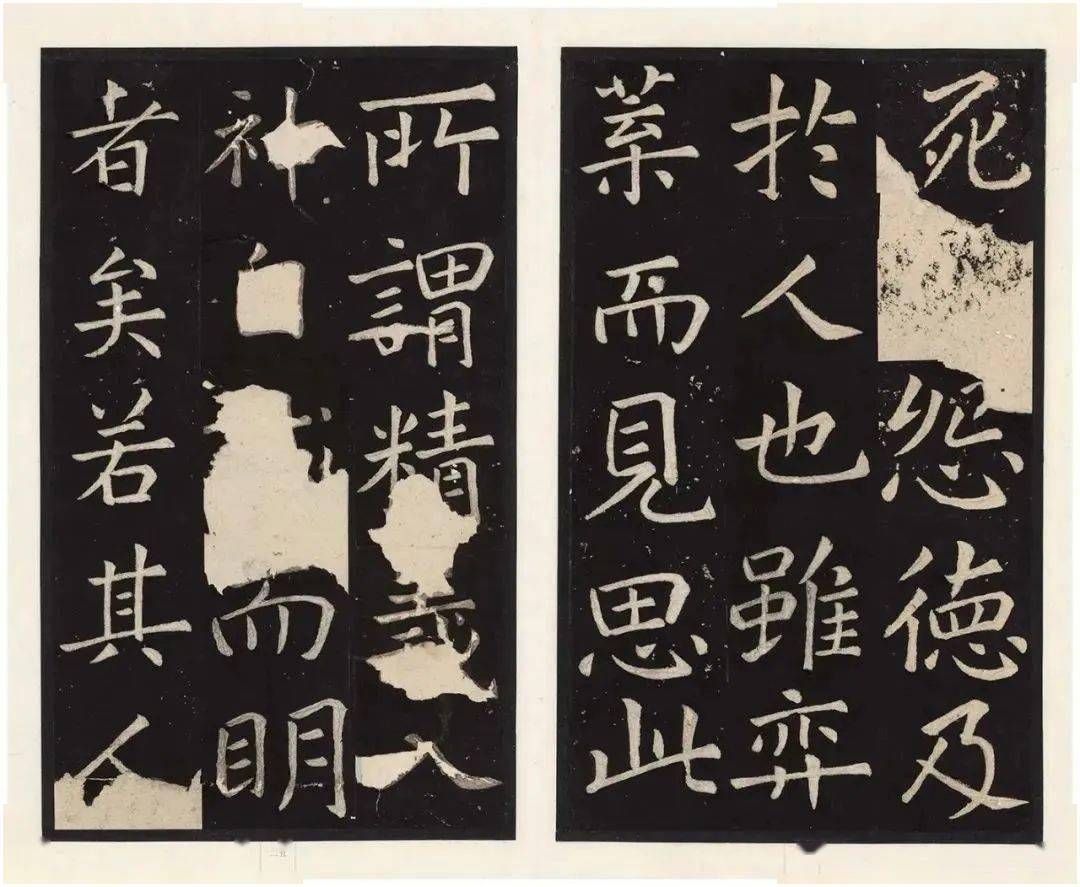 死怨德及
於人也雖弈
葉而見思此
所謂精義入
神自而明
者矣若其人